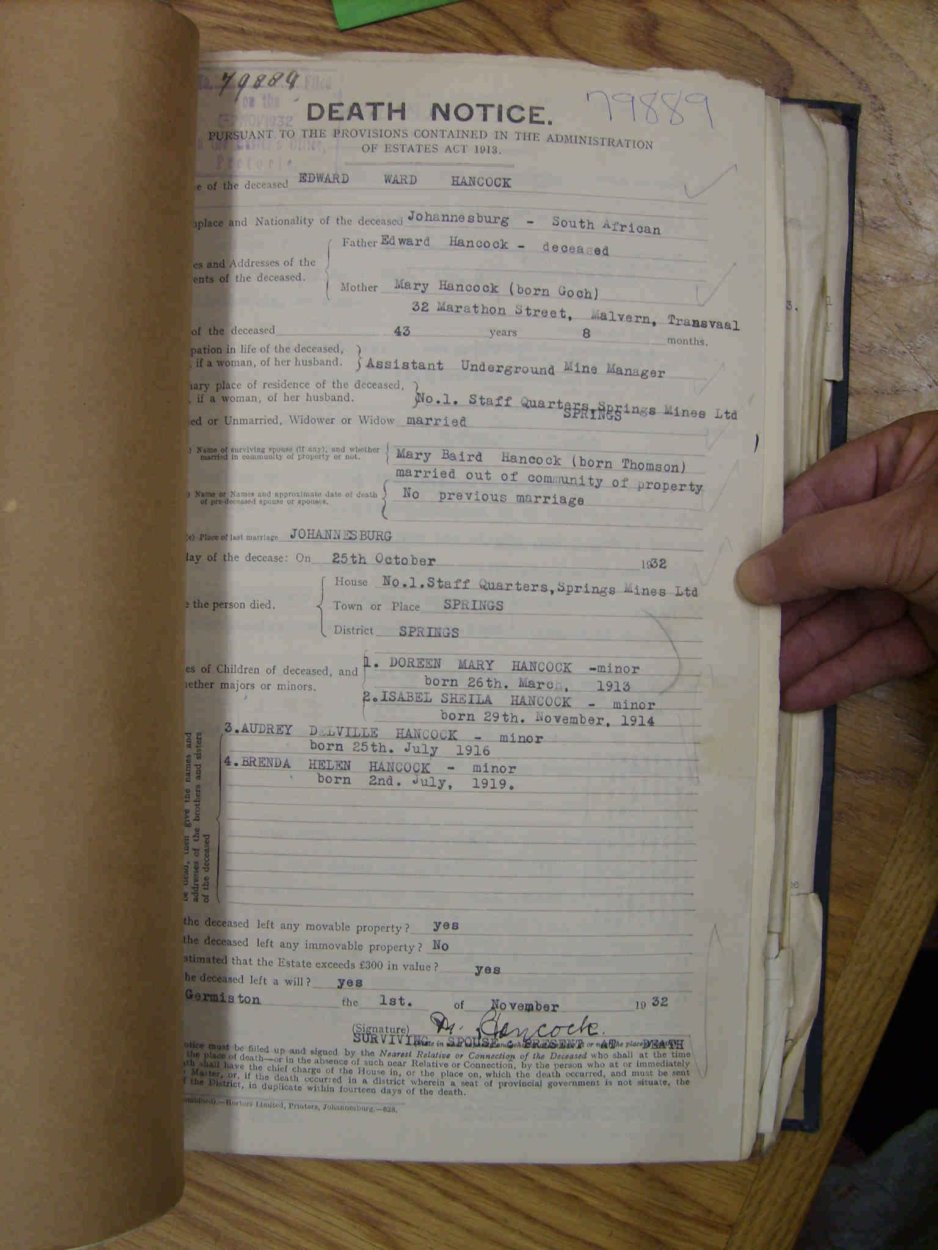 79889
79889
on the
DEATH NOTICE.
PURSUANT TO THE PROVISIONS CONTAINED IN THE ADMINISTRATION
OF ESTATES ACT 1913.
Pretoria
e of the deceased EDWARD WARD HANCOCK
hplace and Nationality of the deceased Johannesburg - South African
Father Edward Hancock - deceased
es and Addresses of the
ents of the deceased.
Mother Mary Hancock (born Goch)
32 Marathon Street, Malvern, Transvaal
of the deceased 43 years 8 months.
pation in life of the deceased,
, if a woman, of her husband. Assistant Underground Mine Manager
nary place of residence of the deceased,
, if a woman, of her husband. No.1. Staff Quarters, Springs Mines Ltd
SPRINGS
ed or Unmarried, Widower or Widow married
Name of surviving spouse (if any), and whether
married in community of property or not. Mary Baird Hancock (born Thomson)
married out of community of property
Name or Names and approximate date of death
of pre-deceased spouse or spouses. No previous marriage
(c) Place of last marriage JOHANNESBURG
day of the decease: On 25th October 1932
House No.1.Staff Quarters,Springs Mines Ltd
e the person died. Town or Place SPRINGS
District SPRINGS
es of Children of deceased, and 1. DOREEN MARY HANCOCK -minor
hether majors or minors. born 26th. March, 1913
2.ISABEL SHEILA HANCOCK - minor
born 29th. November, 1914
3.AUDREY DELVILLE HANCOCK - minor
born 25th. July 1916
4.BRENDA HELEN HANCOCK - minor
born 2nd. July, 1919.
be dead, then give the names and
addresses of the brothers and sisters
of the deceased
the deceased left any movable property? yes
the deceased left any immovable property? No
stimated that the Estate exceeds £300 in value? yes
he deceased left a will? yes
Germiston the 1st. of November 1932
(Signature) Hancock.
SURVIVING SPOUSE : PRESENT AT DEATH
otice must be filled up and signed by the Nearest Relative or Connection of the Deceased who shall at the time
the place of death—or in the absence of such near Relative or Connection, by the person who at or immediately
th shall have the chief charge of the House in, or the place on, which the death occurred, and must be sent
Master, or, if the death occurred in a district wherein a seat of provincial government is not situate, the
f the District, in duplicate within fourteen days of the death.
Limited, Printers, Johannesburg.